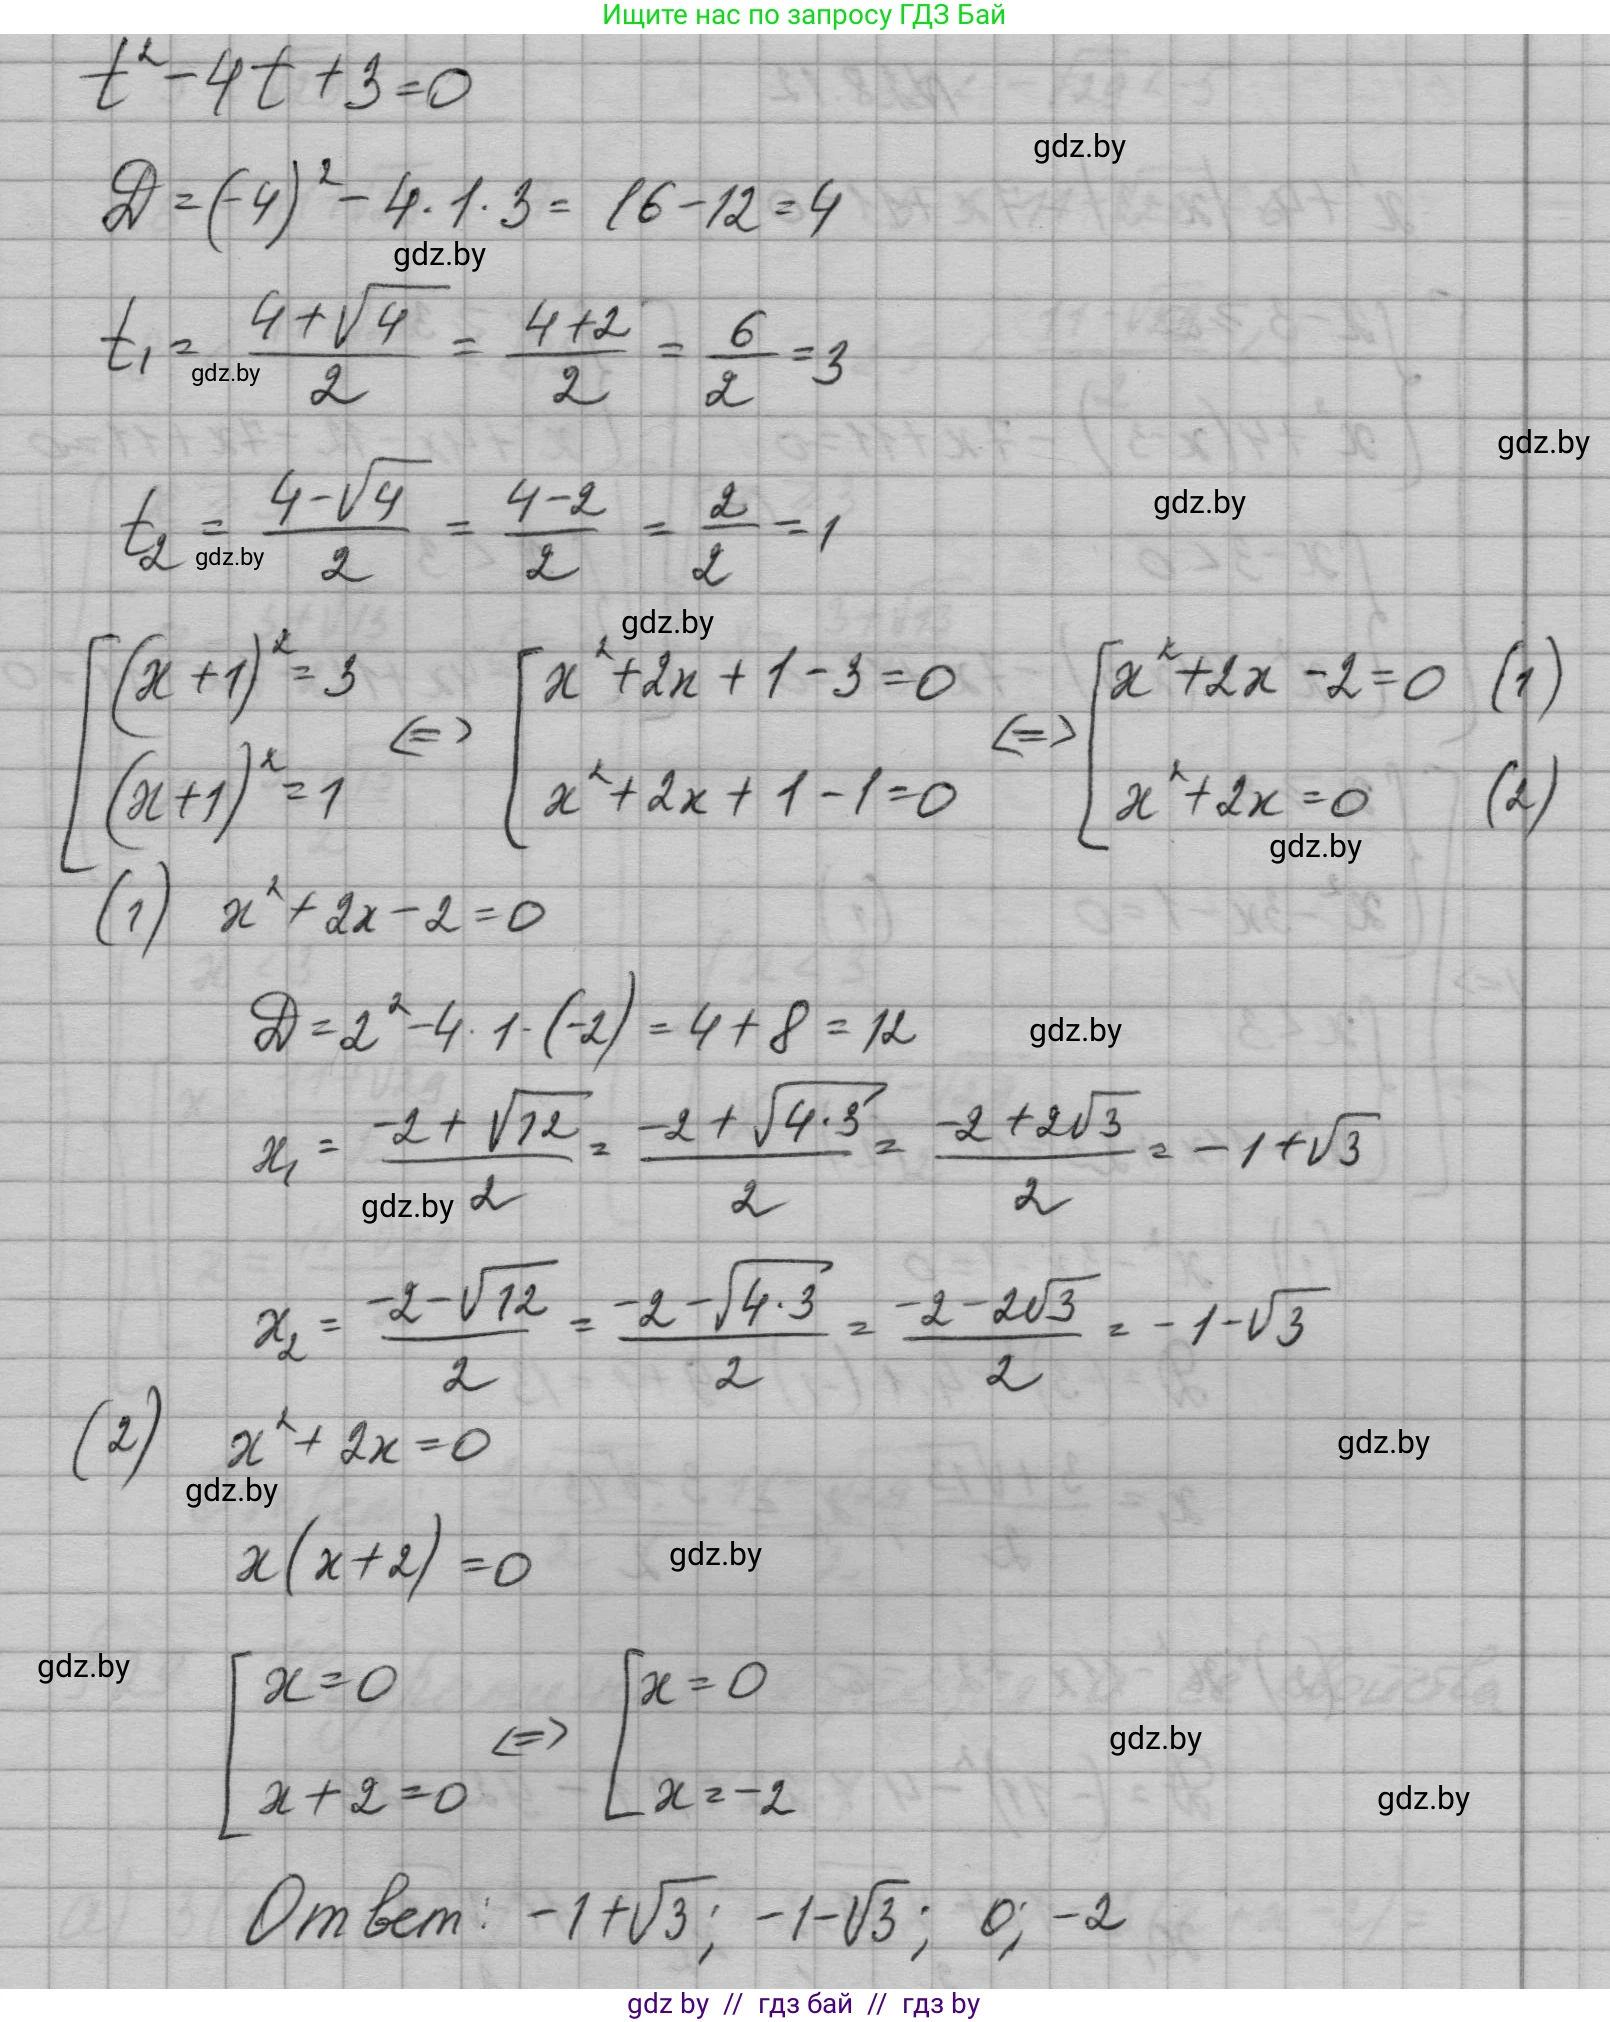 Ищите нас по запросу ГДЗ Бай
t² - 4t + 3 = 0
gdz.by
D = (-4)² - 4·1·3 = 16 - 12 = 4
gdz.by
t₁ = (4+√4)/2 = (4+2)/2 = 6/2 = 3
gdz.by
gdz.by
gdz.by
t₂ = (4-√4)/2 = (4-2)/2 = 2/2 = 1
gdz.by
gdz.by
[(x+1)² = 3 <=> [x² + 2x + 1 - 3 = 0 <=> [x² + 2x - 2 = 0 (1)
[(x+1)² = 1 [x² + 2x + 1 - 1 = 0 [x² + 2x = 0 (2)
gdz.by
(1) x² + 2x - 2 = 0
D = 2² - 4·1·(-2) = 4 + 8 = 12
gdz.by
x₁ = (-2+√12)/2 = (-2+√(4·3))/2 = (-2+2√3)/2 = -1+√3
gdz.by
x₂ = (-2-√12)/2 = (-2-√(4·3))/2 = (-2-2√3)/2 = -1-√3
(2) x² + 2x = 0
gdz.by
gdz.by
x(x+2) = 0
gdz.by
gdz.by
[x = 0 <=> [x = 0
[x + 2 = 0 [x = -2
gdz.by
gdz.by
Ответ: -1+√3; -1-√3; 0; -2
gdz by // гдз бай // гдз by